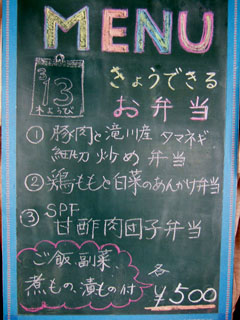 MENU
3
13
木ようび
きょうできる
お弁当
① 豚肉と滝川産タマネギ
細切炒め弁当
② 鶏ももと白菜のあんかけ弁当
③ SPF
甘酢肉団子弁当
ご飯、副菜
煮もの、漬もの付
各
¥500